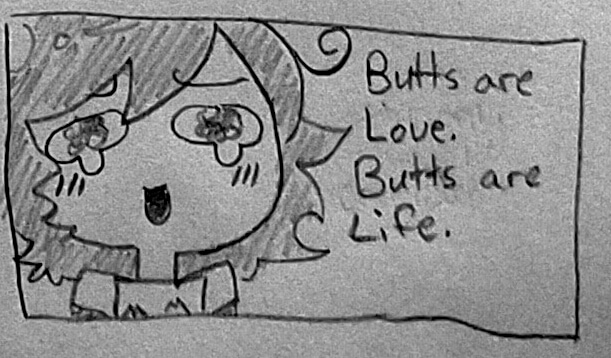 Butts are
Love.
Butts are
Life.